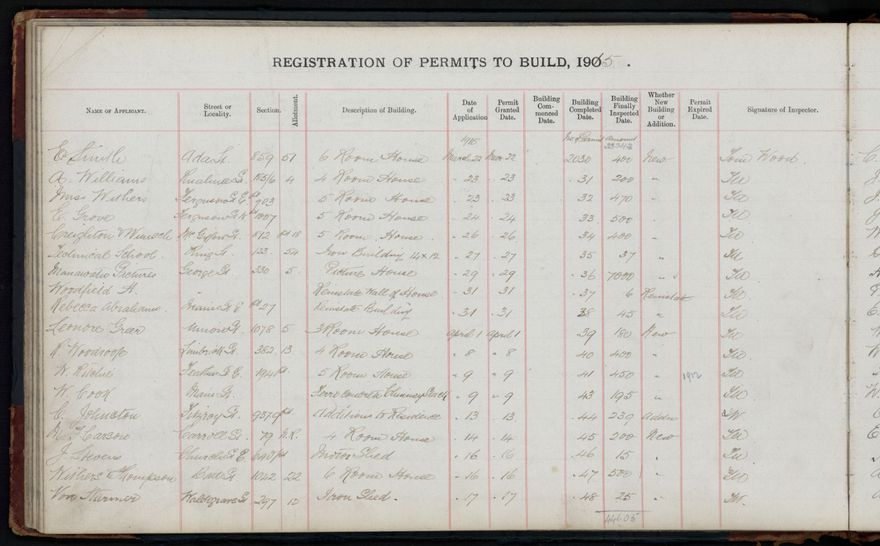 REGISTRATION OF PERMITS TO BUILD, 1915.
NAME OF APPLICANT. Street or Locality. Section. Allotment. Description of Building. Date of Application Permit Granted Date. Building Commenced Date. Building Completed Date. Building Finally Inspected Date. Whether New Building or Addition. Permit Expired Date. Signature of Inspector.
1915 No of Permit Amount
E. Ada St. 859 57 6 Room House March 22 Mar 22 2030 400 New Tom Wood.
A. Williams 4 4 Room House " 23 " 23 " 31 200 " TW
Mrs Withers Ferguson St E 903 5 Room House " 23 " 23 " 32 470 " TW
E. Grove Ferguson St W 1007 5 Room House " 24 " 24 " 33 500 " TW
Creighton 812 Pt 18 5 Room House " 26 " 26 " 34 400 " TW
Technical School. King St. 123 54 Iron Building 14 x 12 " 27 " 27 " 35 37 " TW
Manawatu Pictures George St 330 5 Picture House " 29 " 29 " 36 7000 " TW
Woodfield H. " Reinstate Wall of House " 31 " 31 " 37 6 Reinstate TW
Rebecca Abrahams Main St E Pt 27 Reinstate Building " 31 " 31 " 38 45 " TW
Leonore Greer Union St 1078 5 3 Room House April 1 April 1 39 180 New TW
R. Woodroofe Limbrick St 382 13 4 Room House " 8 " 8 " 40 400 " TW
W. Ritchie 5 Room House " 9 " 9 " 41 450 " TW
W. Cook Main St. Terra Conota Chimney Stack " 9 " 9 " 43 195 " TW
C. Johnston Fitzroy St. Additions to Residence " 13 " 13 " 44 239 Addn W
Carson Carroll St. 79 N.R. 4 Room House " 14 " 14 " 45 200 New TW
J. Stevens Church St E Motor Shed " 16 " 16 " 46 15 " TW
Withers Thompson 1042 22 6 Room House " 16 " 16 " 47 500 " TW
Von Sturmer Waldegrave St 297 10 Iron Shed. " 17 " 17 " 48 25 " TW.